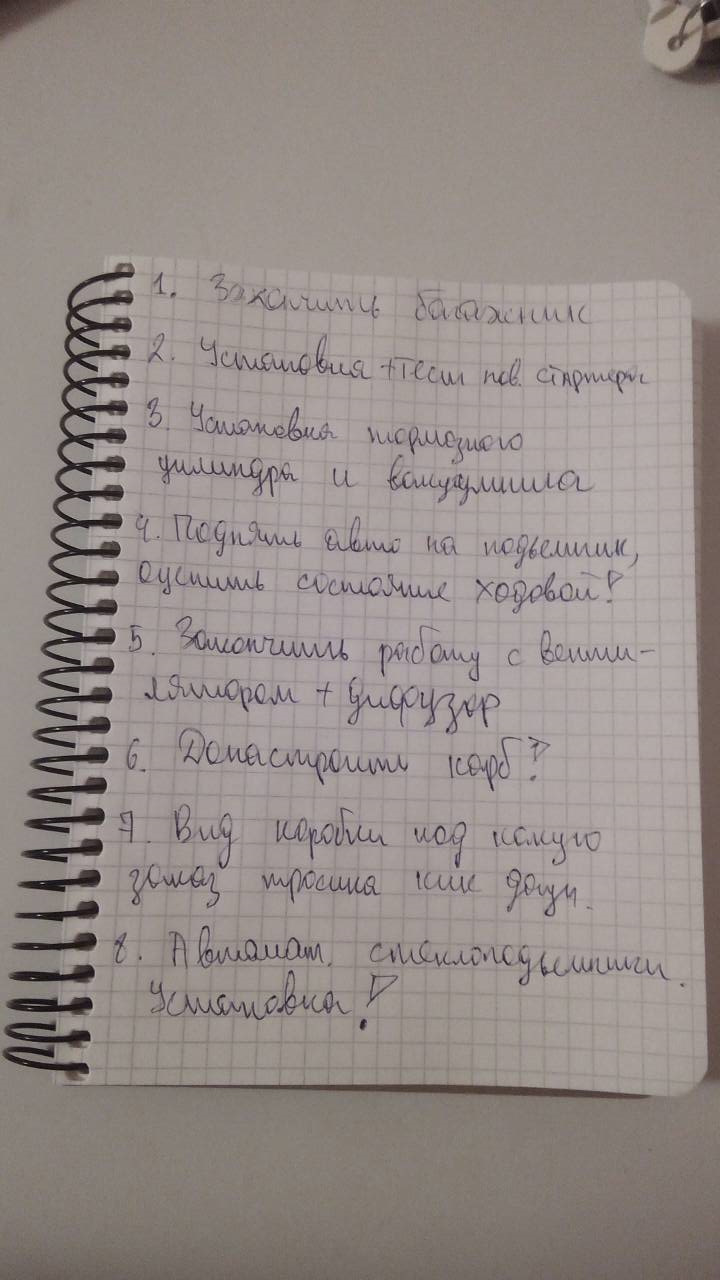 1. Закончить багажник
2. Установка + тест нов. стартера
3. Установка тормозного
цилиндра и вакуумника
4. Поднять авто на подьемник,
оценить состояние ходовой!
5. Закончить работу с венти-
лятором + дифузор
6. Донастроить карб!
7. Вид коробки под какую
заказ тросика кик даун.
8. Автомат. стеклоподьемники.
Установка!